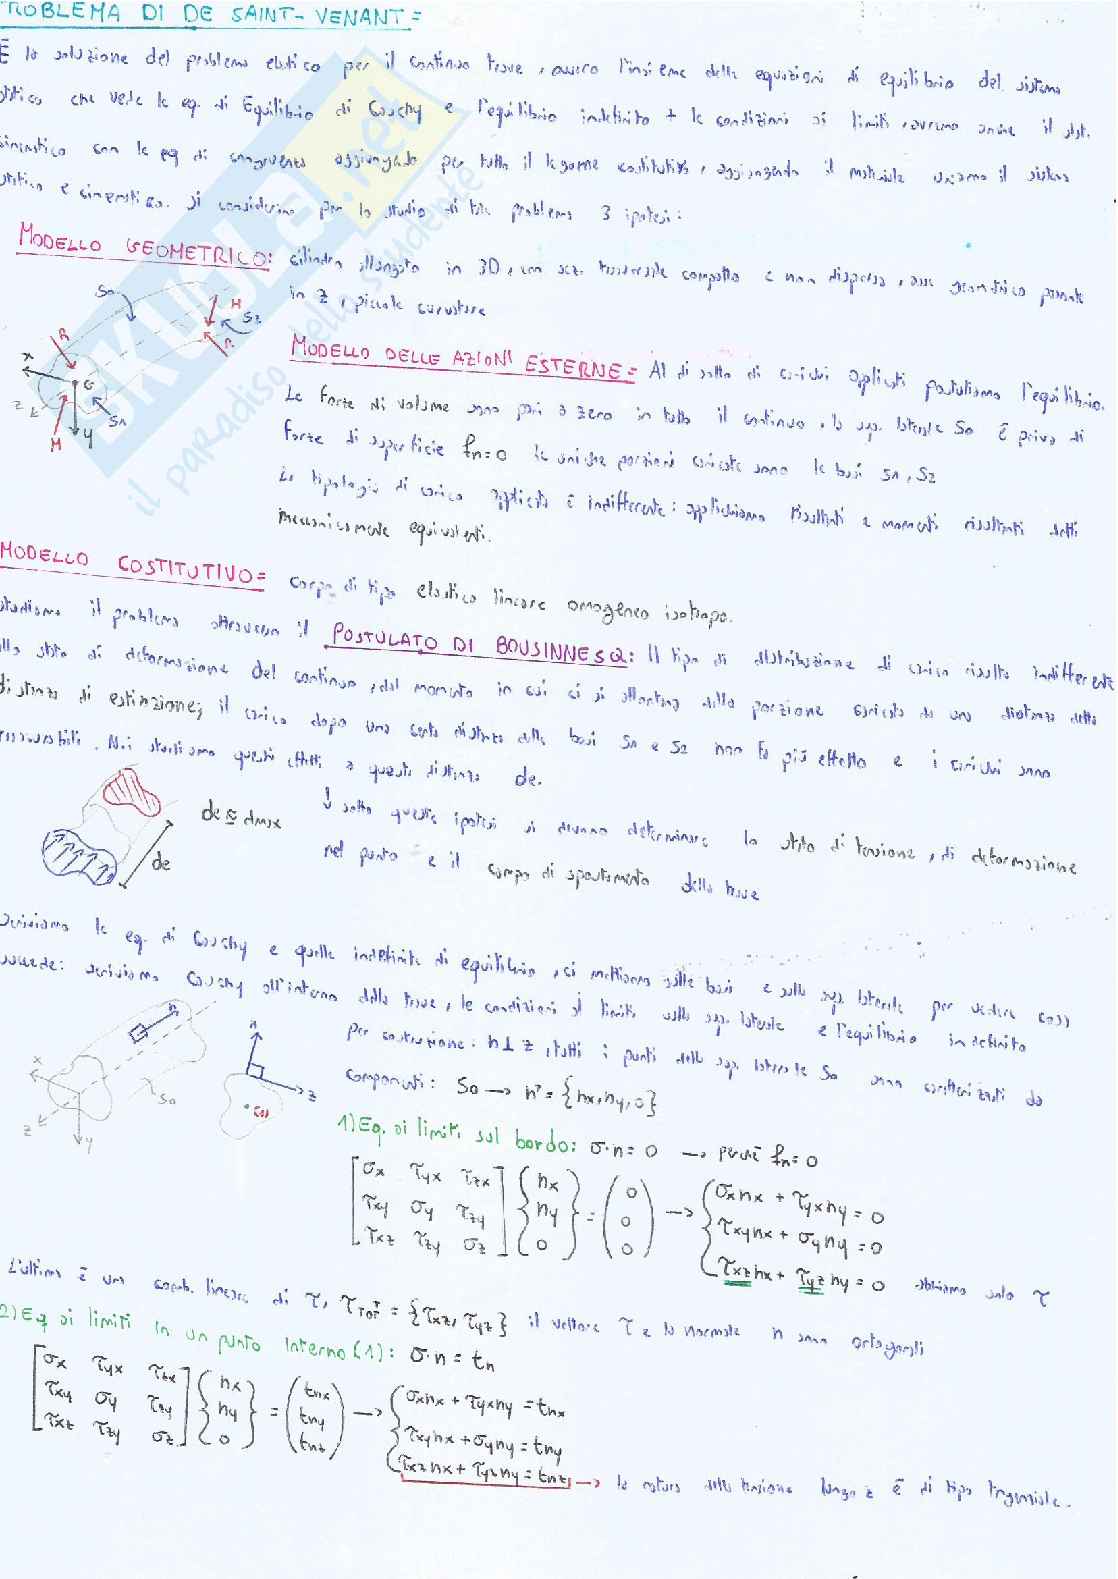 PROBLEMA DI DE SAINT-VENANT=
È la soluzione del problema elastico per il continuo trave, ovvero l'insieme delle equazioni di equilibrio del sistema
statico che vede le eq. di Equilibrio di Cauchy e l'equilibrio indefinito + le condizioni ai limiti, avremo anche il sist.
cinematico con le eq di congruenza aggiungendo per tutto il legame costitutivo, aggiungendo il materiale uniamo il sistema
statico e cinematico. Si considerino per lo studio di tale problema 3 ipotesi:
MODELLO GEOMETRICO: cilindro allungato in 3D, con sez. trasversale compatta e non dispersa, asse geometrico
in z, piccole curvature
MODELLO DELLE AZIONI ESTERNE= Al di sotto di carichi applicati postuliamo l'equilibrio.
Le forze di volume sono pari a zero in tutto il continuo, la sup. laterale So è priva di
forze di superficie fn=0 le uniche porzioni caricate sono le basi S1, S2
La tipologia di carico applicata è indifferente: applichiamo risultanti e momenti risultanti detti
meccanicamente equivalenti.
So
M
R
S2
R
x
G
z
S1
M
y
MODELLO COSTITUTIVO= corpo di tipo elastico lineare omogeneo isotropo.
studiamo il problema attraverso il POSTULATO DI BOUSINNESQ: Il tipo di distribuzione di carico risulta indifferente
allo stato di deformazione del continuo, dal momento in cui ci si allontana dalla porzione caricata da una distanza detta
distanza di estinzione; il carico dopo una certa distanza dalle basi S1 e S2 non fa più effetto e i carichi sono
trascurabili. Noi studiamo questi effetti a questa distanza de.
de ≅ dmax
de
↓ sotto queste ipotesi si devono determinare lo stato di tensione, di deformazione
nel punto e il campo di spostamento della trave
Scriviamo le eq. di Cauchy e quelle indefinite di equilibrio, ci mettiamo sulle basi e sulla sup. laterale per vedere cosa
succede: scriviamo Cauchy all'interno della trave, le condizioni ai limiti sulla sup. laterale e l'equilibrio indefinito
per costruzione: n⊥z, tutti i punti della sup. laterale So sono caratterizzati da
componenti: So → nᵀ = {nx, ny, 0}
n
x
So
z
y
n
z
1) Eq. ai limiti sul bordo: σ·n = 0 → perchè fn = 0
[σx τyx τzx] {nx} (0) { σxnx + τyxny = 0
[τxy σy τzy] {ny} = (0) → { τxynx + σyny = 0
[τxz τzy σz] {0} (0) { τxznx + τyzny = 0 abbiamo solo τ
L'ultima è una comb. lineare di τ, τTOTᵀ = {τxz, τyz} il vettore τ e la normale n sono ortogonali
2) Eq ai limiti in un punto interno (1): σ·n = tn
[σx τyx τzx] {nx} (tnx) { σxnx + τyxny = tnx
[τxy σy τzy] {ny} = (tny) → { τxynx + σyny = tny
[τxz τzy σz] {0} (tnz) { τxznx + τyzny = tnz → la natura della tensione lungo z è di tipo tangenziale.
SKUOLA.net
il paradiso dello studente